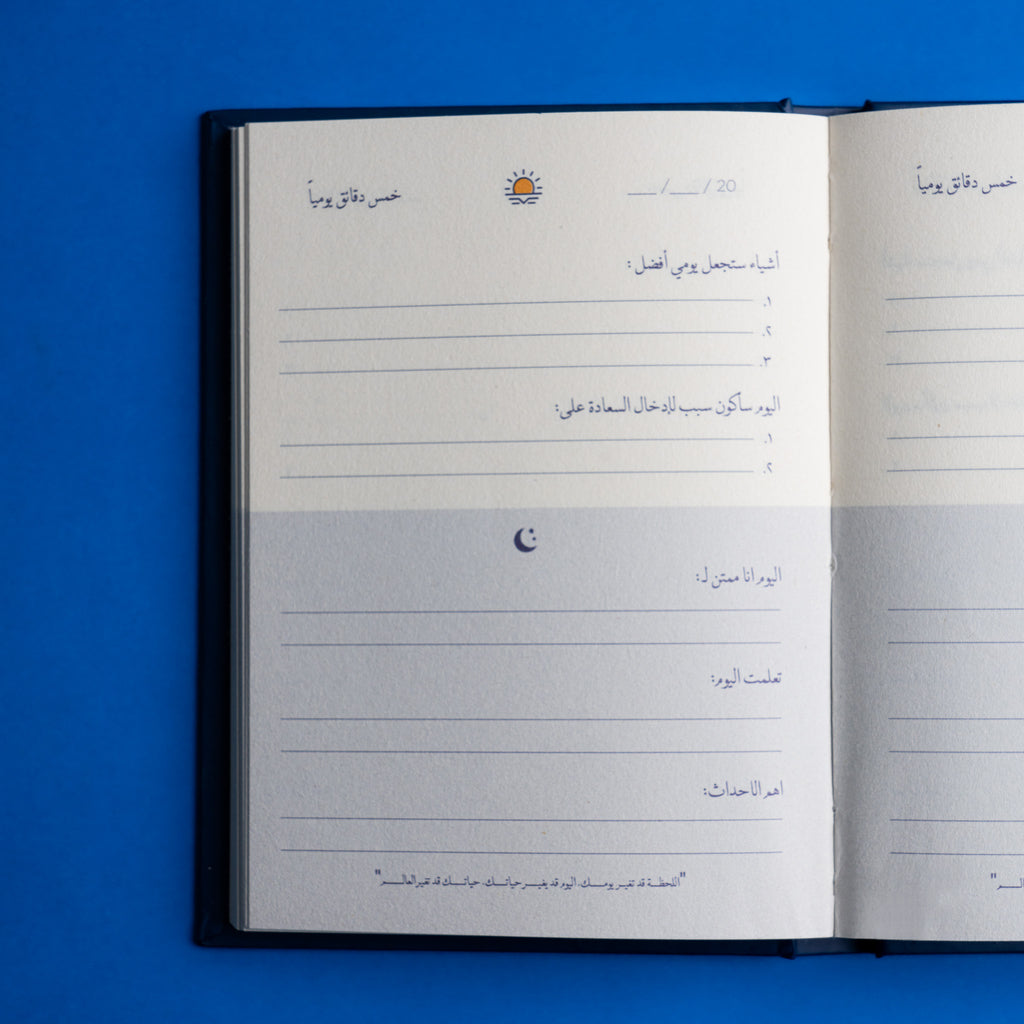 خمس دقائق يومياً
___ /___ / 20
أشياء ستجعل يومي أفضل :
١.
٢.
٣.
اليوم سأكون سبب للإدخال السعادة على:
١.
٢.
اليوم انا ممتن لـ:
تعلمت اليوم:
اهم الاحداث:
"اللحظـة قد تغيـر يومـك. اليوم قد يغيـر حياتـك. حياتـك قد تغير العالـم"
خمس دقائق يومياً